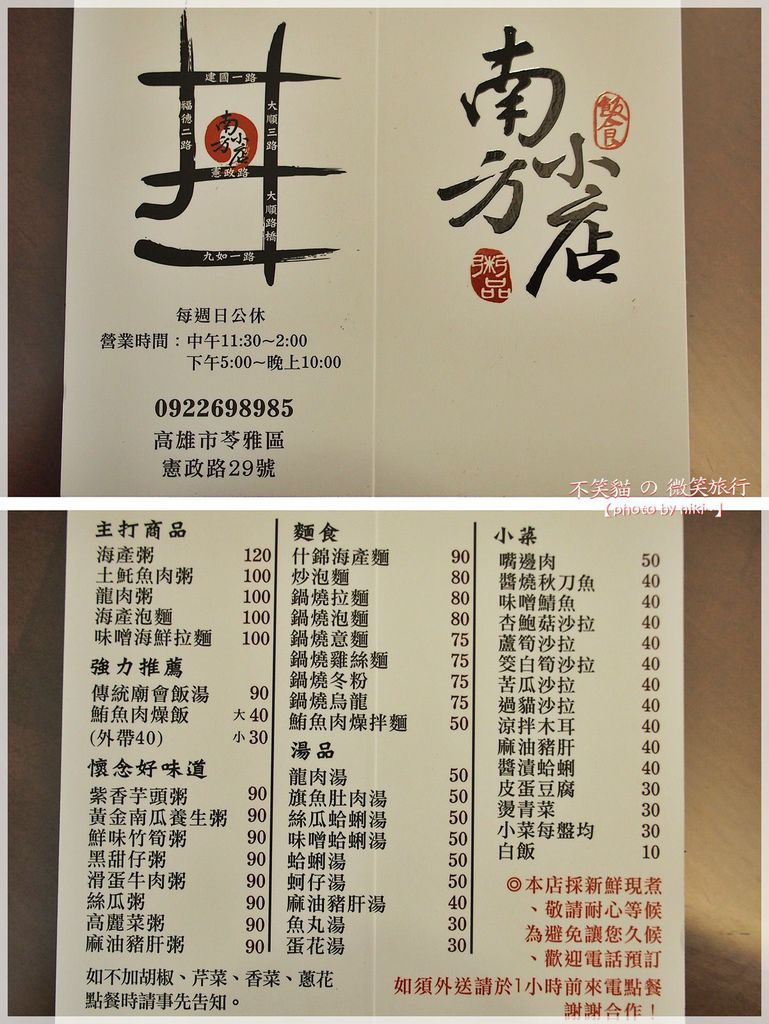 建國一路
福德二路
大順三路
南方小店
憲政路
大順路橋
九如一路
每週日公休
營業時間：中午11:30~2:00
下午5:00~晚上10:00
0922698985
高雄市苓雅區
憲政路29號
南方小店
飯食
粥品
不笑貓 の 微笑旅行
【photo by niki~】
主打商品
海產粥 120
土魠魚肉粥 100
龍肉粥 100
海產泡麵 100
味噌海鮮拉麵 100
強力推薦
傳統廟會飯湯 90
鮪魚肉燥飯 大40
(外帶40) 小30
懷念好味道
紫香芋頭粥 90
黃金南瓜養生粥 90
鮮味竹筍粥 90
黑甜仔粥 90
滑蛋牛肉粥 90
絲瓜粥 90
高麗菜粥 90
麻油豬肝粥 90
如不加胡椒、芹菜、香菜、蔥花
點餐時請事先告知。
麵食
什錦海產麵 90
炒泡麵 80
鍋燒拉麵 80
鍋燒泡麵 80
鍋燒意麵 75
鍋燒雞絲麵 75
鍋燒冬粉 75
鍋燒烏龍 75
鮪魚肉燥拌麵 50
湯品
龍肉湯 50
旗魚肚肉湯 50
絲瓜蛤蜊湯 50
味噌蛤蜊湯 50
蛤蜊湯 50
蚵仔湯 50
麻油豬肝湯 40
魚丸湯 30
蛋花湯 30
小菜
嘴邊肉 50
醬燒秋刀魚 40
味噌鯖魚 40
杏鮑菇沙拉 40
蘆筍沙拉 40
筊白筍沙拉 40
苦瓜沙拉 40
過貓沙拉 40
涼拌木耳 40
麻油豬肝 40
醬漬蛤蜊 40
皮蛋豆腐 30
燙青菜 30
小菜每盤均 30
白飯 10
◎本店採新鮮現煮
、敬請耐心等候
為避免讓您久候
、歡迎電話預訂
如須外送請於1小時前來電點餐
謝謝合作！